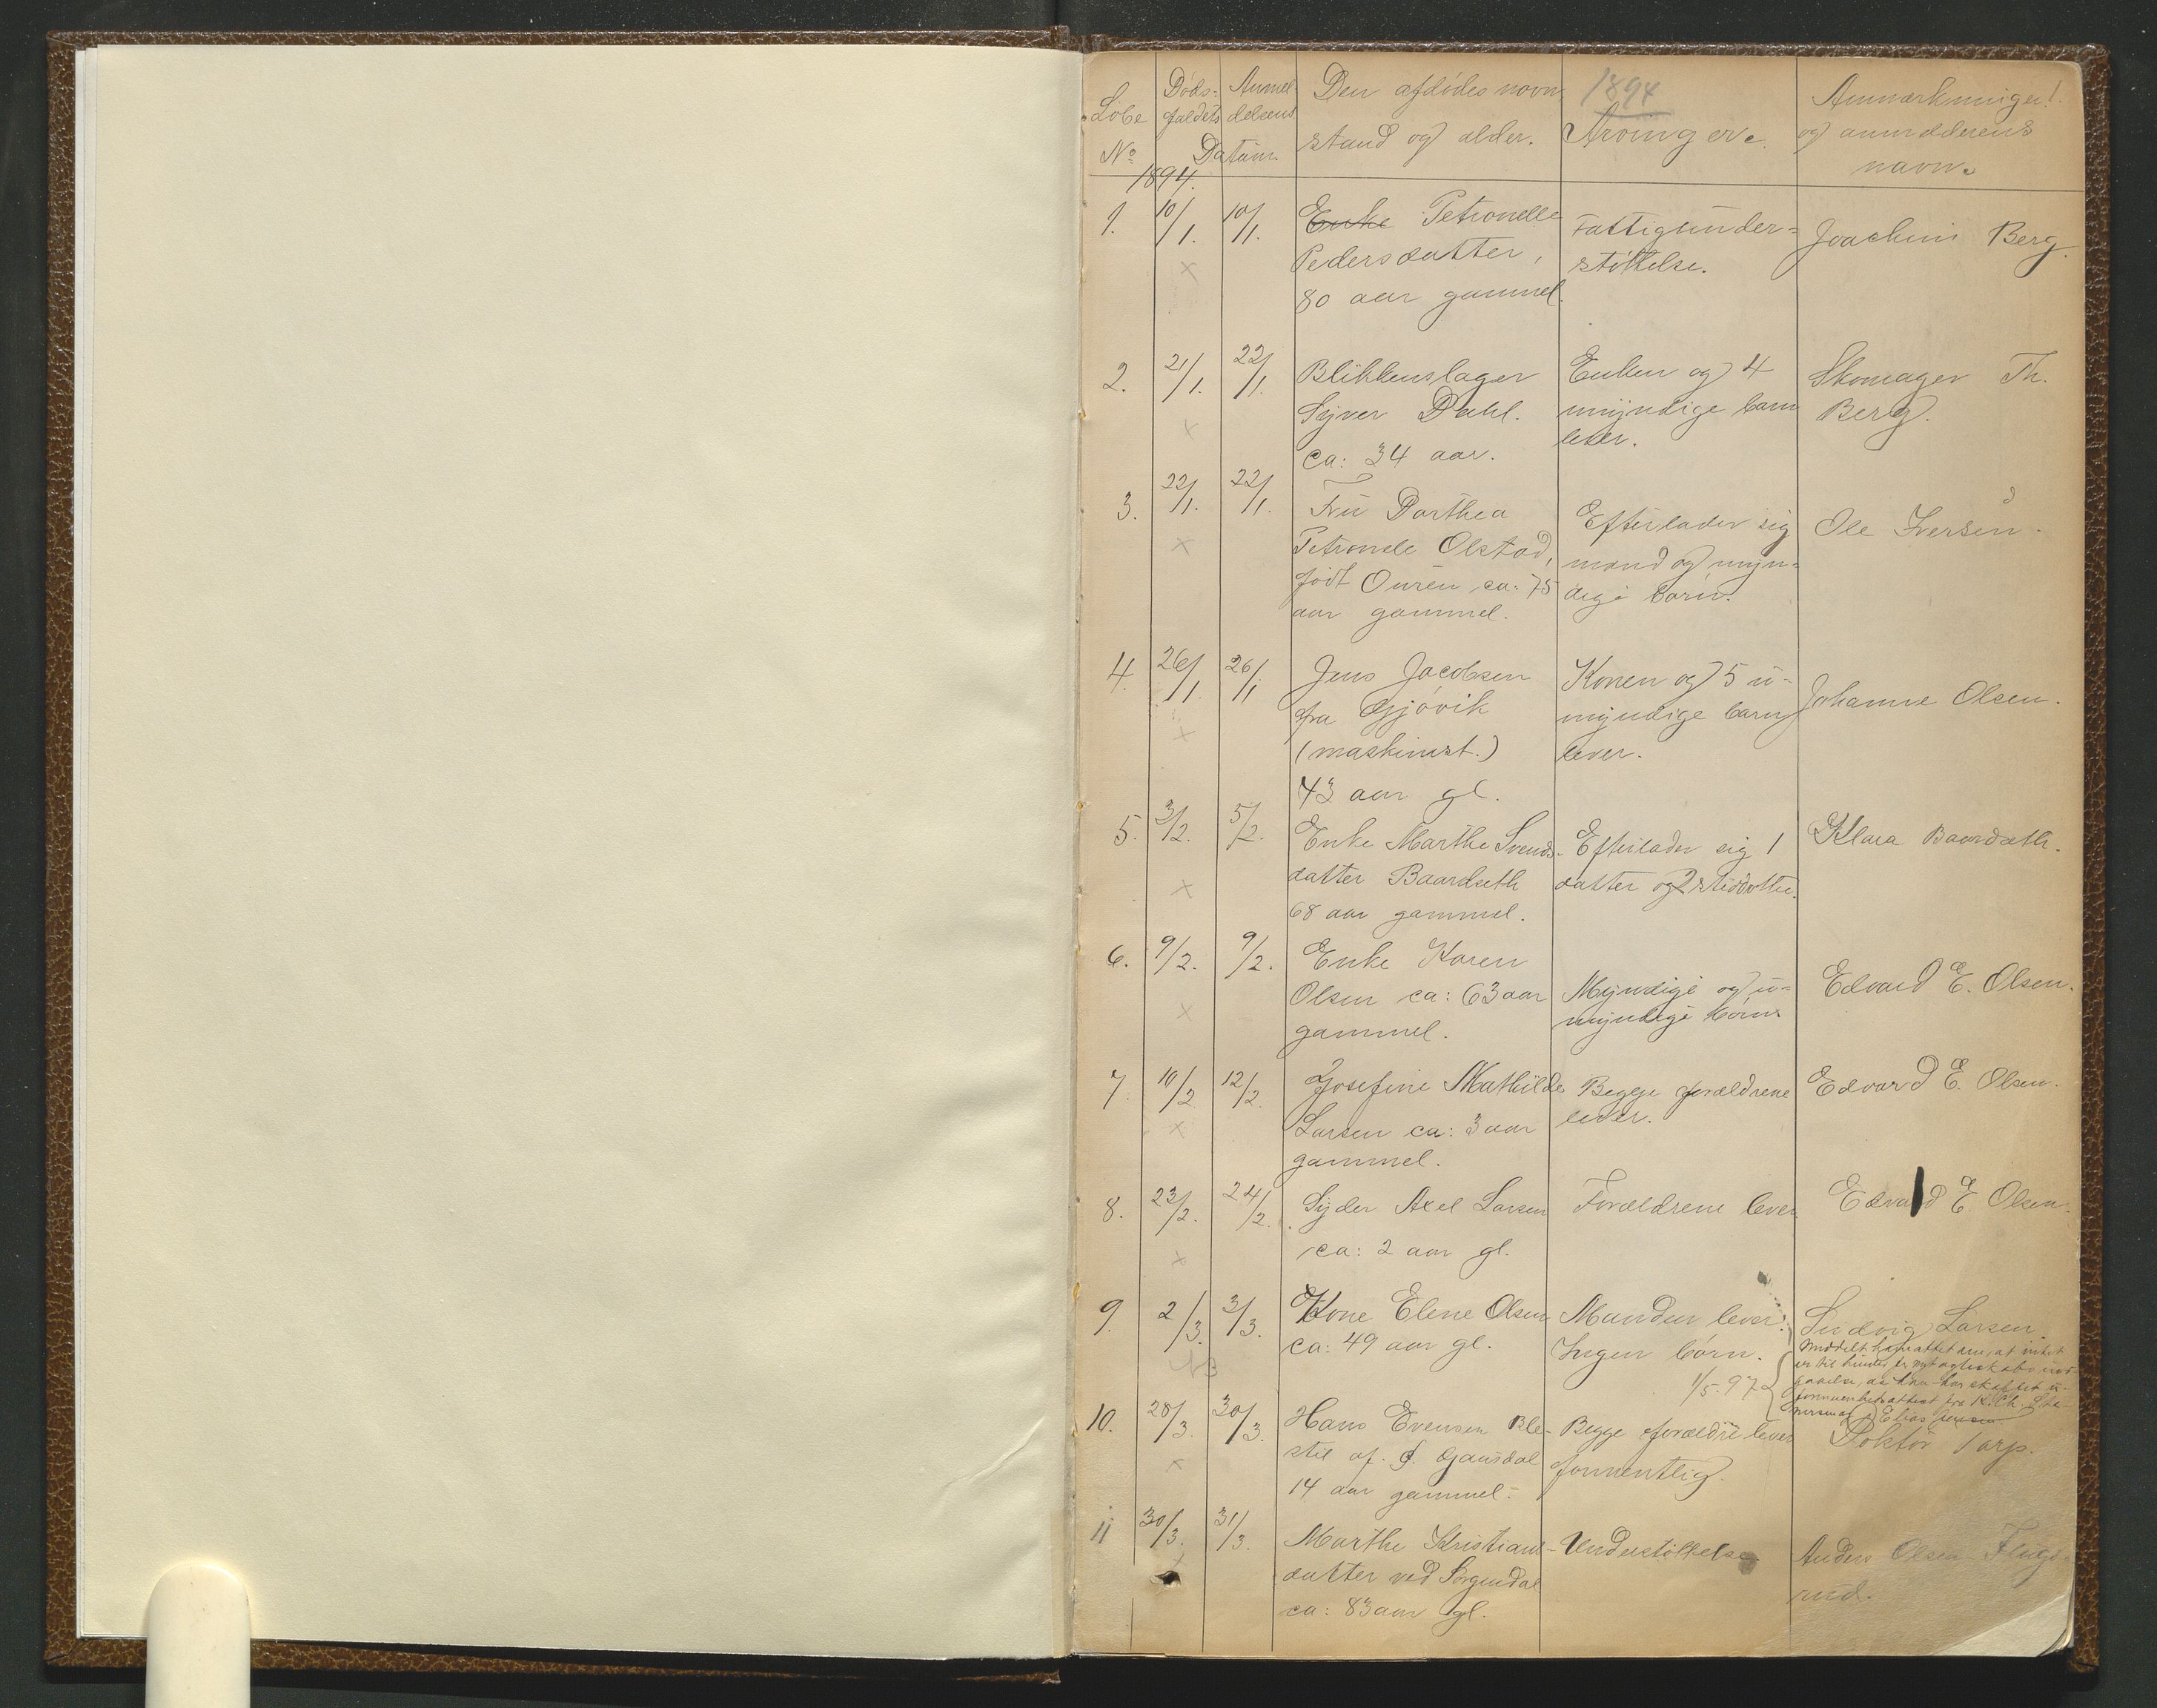 1894
Løbe No
Døds-faldets Anmel-delsens Datum.
Den afdødes navn, stand og alder.
Arvinger.
Anmærkninger og anmelderens navn.
1894.
1. 10/1. 10/1. Enke Petronelle Fattigunder= Joachim Berg.
Pedersdatter, støttelse.
80 aar gammel.
2. 21/1. 22/1. Blikkenslager Enken og 4 Skomager Th.
Syver Dahl. umyndige barn Berg.
ca: 34 aar. lever.
3. 22/1. 22/1. Fru Dorthea Efterlader sig Ole Iversen.
Petronele Olstad, mand og myn=
født Ourén ca: 75 dige børn.
aar gammel.
4. 26/1 26/1 Jens Jacobsen Konen og 5 u= Johanne Olsen.
fra Gjøvik myndige barn
(maskinist.) lever.
43 aar gl.
5. 3/2. 5/2. Enke Marthe Svends- Efterlader sig 1 Klara Baardseth.
datter Baardseth datter og 2 steddøttre.
68 aar gammel.
6. 9/2. 9/2. Enke Karen Edvard E. Olsen.
Olsen ca: 63 aar Myndige og u=
gammel. myndige børn
7. 10/2 12/2. Josefine Mathilde Begge forældrene Edvard E. Olsen.
Larsen ca: 3 aar lever.
gammel.
8. 23/2. 24/2. Syder Axel Larsen Forældrene lever Edvard E Olsen.
ca: 2 aar gl.
9. 2/3. 3/3. Kone Elene Olsen Manden lever. Ludvig Larsen.
ca: 49 aar gl. Ingen børn.
NB 1/5.97 Meddelt attest om, at intet
er til hinder for nyt ægteskabs ind-
gaaelse, da han har skaffet u-
attest fra K. Ch.
Elias
10. 28/3 30/3. Hans Evensen Ble- Begge forældre lever Doktor Tarp.
stil af. Ø. Gausdal formentlig.
14 aar gammel.
11 30/3. 31/3. Marthe Kristians- Understøttelse Anders Olsen
datter ved Sorgendal rud.
ca: 83 aar gl.